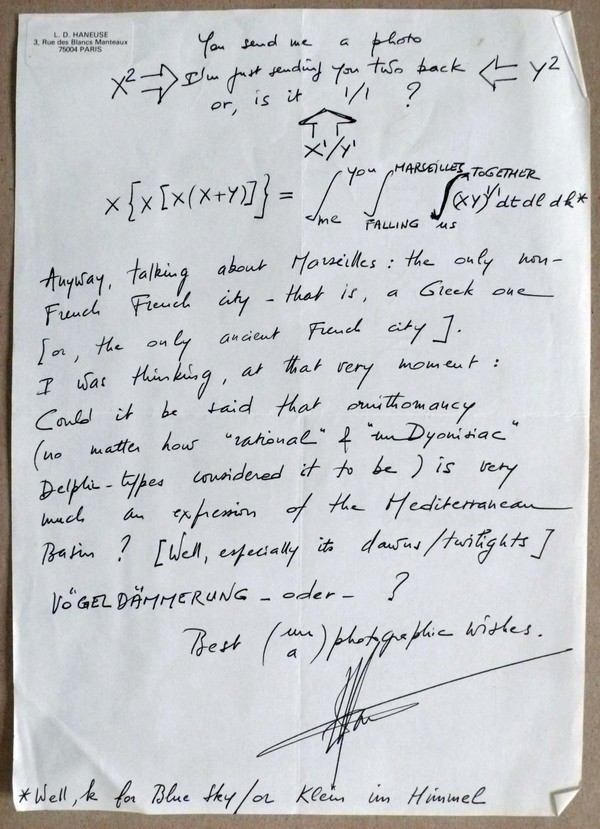 L. D. HANEUSE
3, Rue des Blancs Manteaux
75004 PARIS
You send me a photo
X² ⇒ I'm just sending you two back ⇐ Y²
or, is it 1/1 ?
X¹/Y¹
X{X[X(X+Y)]} = ∫me^you ∫FALLING^MARSEILLES ∫us^TOGETHER (XY)^1/1 dt dl dk*
Anyway, talking about Marseilles: the only non-
French French city – that is, a Greek one
[or, the only ancient French city].
I was thinking, at that very moment:
Could it be said that ornithomancy
(no matter how "rational" & "un Dyonisiac"
Delphic-types considered it to be) is very
much an expression of the Mediterranean
Basin? [Well, especially its dawns/twilights]
VÖGELDÄMMERUNG – oder – ?
Best (un/a) photographic wishes.
*Well, k for Blue Sky/or Klein im Himmel